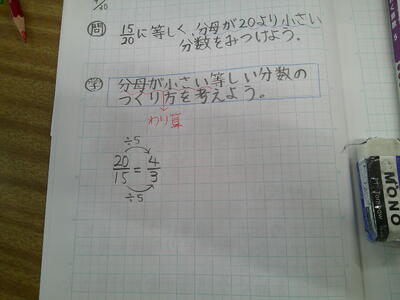 /40
問 15/20に等しく、分母が20より小さい
分数をみつけよう。
学 分母が小さい等しい分数の
つくり方を考えよう。
わり算
÷5
20/15 = 4/3
÷5
MONO